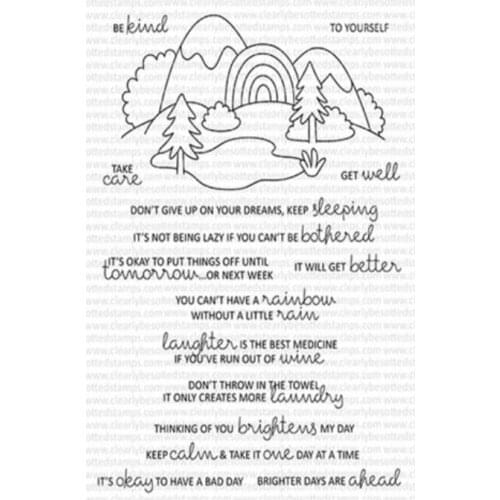 BE kind
TO YOURSELF
TAKE
care
GET well
DON'T GIVE UP ON YOUR DREAMS, KEEP sleeping
IT'S NOT BEING LAZY IF YOU CAN'T BE bothered
IT'S OKAY TO PUT THINGS OFF UNTIL
tomorrow...OR NEXT WEEK
IT WILL GET better
YOU CAN'T HAVE A rainbow
WITHOUT A LITTLE rain
laughter IS THE BEST MEDICINE
IF YOU'VE RUN OUT OF wine
DON'T THROW IN THE TOWEL
IT ONLY CREATES MORE laundry
THINKING OF YOU brightens MY DAY
KEEP calm & TAKE IT one DAY AT A TIME
IT'S okay TO HAVE A BAD DAY
BRIGHTER DAYS ARE ahead
www.clearlybesottedstamps.com